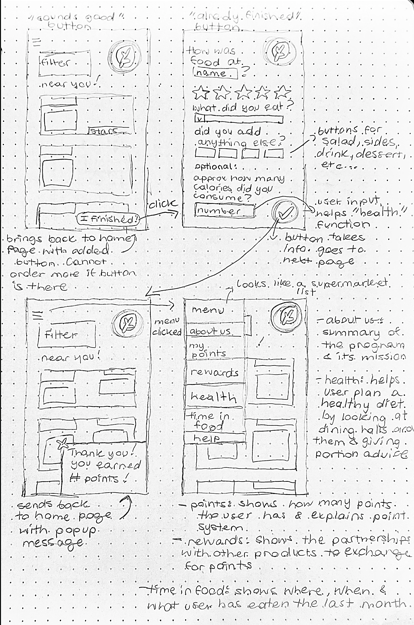 "sounds good"
button
"already finished"
button
Filter
near you!
stars
I finished!
click
brings back to home
page with added
button. Cannot
order more if button
is there
How was
food at
name ?
what did you eat?
did you add
anything else?
optional:
approx how many
calories did you
consume?
number
buttons for
salad, sides,
drink, dessert,
etc...
user input,
helps "health"
function
button takes
info. goes to
next page
Filter
near you!
Thank you!
you earned
# points!
sends back
to home page
with popup
message
menu
clicked
Looks like a supermarket
list
menu
about us
my
points
rewards
health
time in
food
help
- about us:
summary of
the program
& its mission
- health: helps
user plan a
healthy diet
by looking at
dining halls and
them & giving
portion advice
- points: shows how many points
the user has & explains point
system.
- rewards: shows the partnerships
with other products to exchange
for points
- time in food: shows where, when &
what user has eaten the last month.